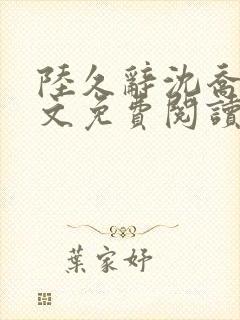 陸久辭沈喬
文免費閱讀
葉家妤